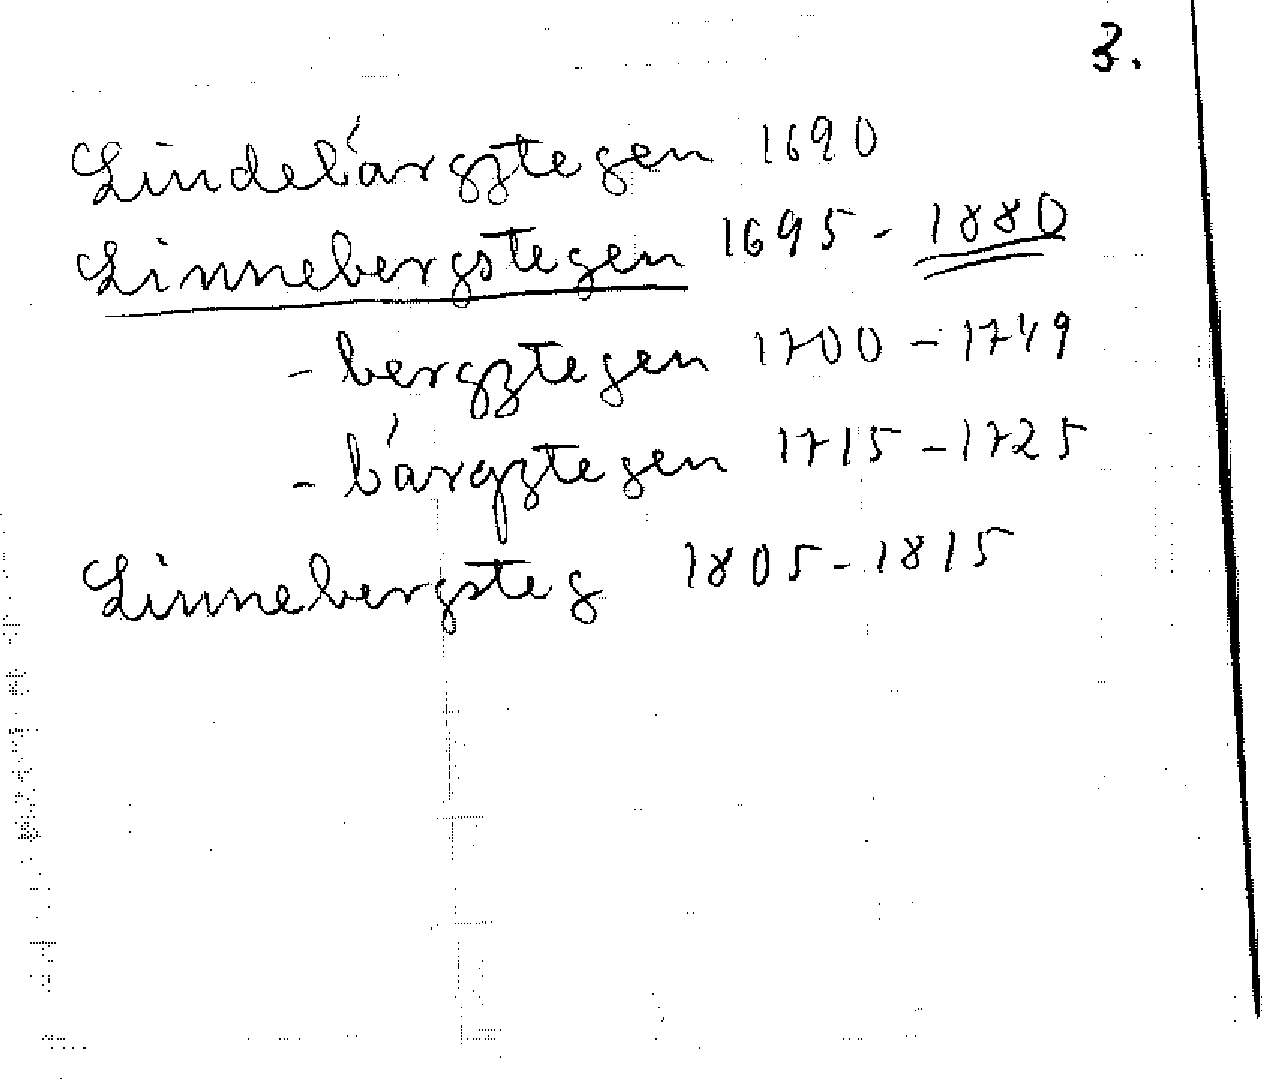 3.
Lindebárgztegen 1690
Linnebergstegen 1695 - 1880
- bergztegen 1700 - 1749
- bárgztegen 1715 - 1725
Linnebergsteg 1805 - 1815